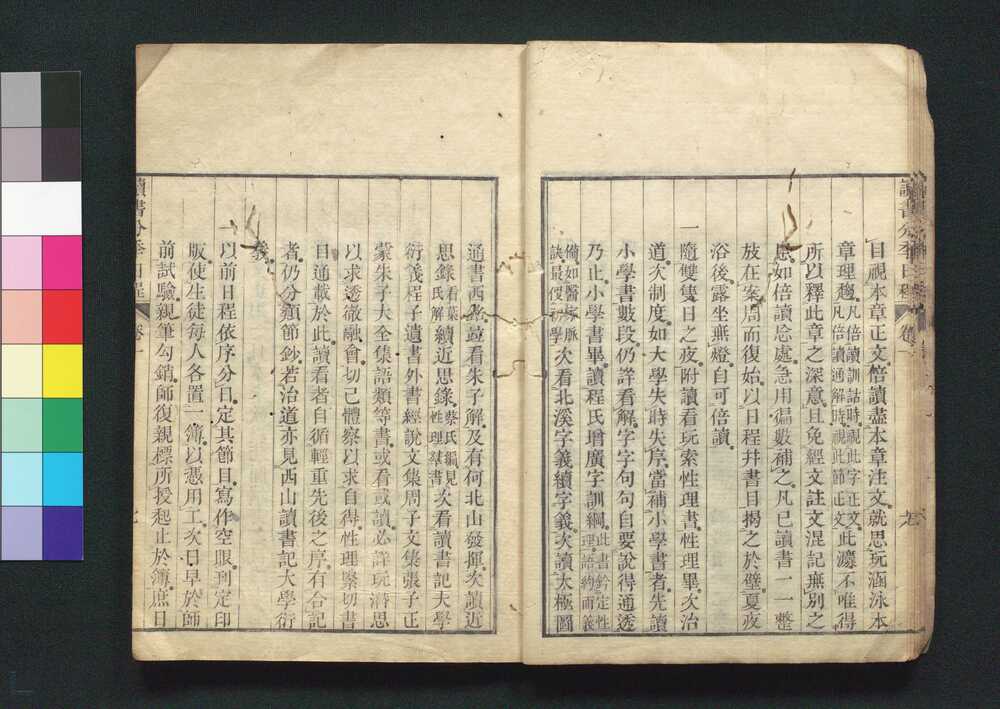 讀書分年日程 卷一 九
目視本章正文倍讀盡本章注文就思玩涵泳本
章理趣凡倍讀訓詁時視此字正文凡倍讀通解時視此節正文此灋不唯得
所以釋此章之深意且免經文註文混記無別之
患如倍讀忘處急用徧數補之凡已讀書一一整
放在案周而復始以日程幷書目揭之於壁夏夜
浴後露坐無燈自可倍讀
一隨雙隻日之夜附讀看玩索性理書性理畢次治
道次制度如大學失時失序當補小學書者先讀
小學書數段仍詳看解字字句句自要說得通透
乃止小學書畢讀程氏增廣字訓綱此書銓定性理語約而義
備如醫家脈訣最便初學次看北溪字義續字義次讀太極圖
通書西銘竝看朱子解及有何北山發揮次讀近
思錄看葉氏解續近思錄蔡氏編見性理羣書次看讀書記大學
衍義程子遺書外書經說文集周子文集張子正
蒙朱子大全集語類等書或看或讀必詳玩潛思
以求透徹融會切己體察以求自得性理緊切書
目通載於此讀看者自循輕重先後之序有合記
者仍分類節鈔若治道亦見西山讀書記大學衍
義
一以前日程依序分日定其節目寫作空眼刊定印
版使生徒每人各置一簿以憑用工次日早於師
前試驗親筆勾銷師復親標所授起止於簿庶日
讀書分年日程 卷